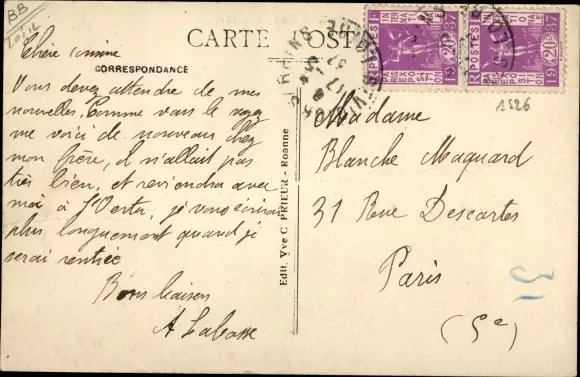 BB
CARTE POSTALE
CORRESPONDANCE
Chère cousine
Vous devez attendre de mes
nouvelles. Comme vous le voyez
me voici de nouveau chez
mon frère, il n'allait pas
très bien, et reviendra avec
moi à J'Vertu, je vous écrirai
plus longuement quand je
serai rentrée
Bons baisers
A Labasse
Edit. Vve C. PRIEUR - Roanne
POSTES
EXPOSITION
INTERNATIONALE
PARIS
1937
20c
POSTES
EXPOSITION
INTERNATIONALE
PARIS
1937
20c
1526
Madame
Blanche Maquard
31 Rue Descartes
Paris
(5e)